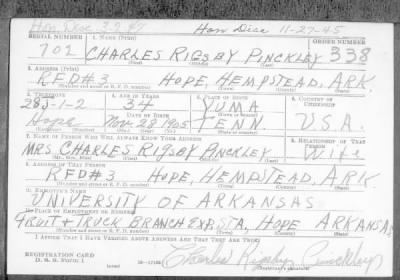 Hon Disc 11-27-45
SERIAL NUMBER 1. NAME (Print) ORDER NUMBER
702 CHARLES RIGSBY PINCKLEY 338
(First) (Middle) (Last)
2. ADDRESS (Print)
RFD#3 HOPE, HEMPSTEAD, ARK.
(Number and street or R. F. D. number) (Town) (County) (State)
3. TELEPHONE 4. AGE IN YEARS 5. PLACE OF BIRTH 6. COUNTRY OF CITIZENSHIP
28J-1-2 34 YUMA
DATE OF BIRTH (Town or county)
Hope Nov. 28 1905 TENN. U.S.A.
(Exchange) (Mo.) (Day) (Yr.) (State or country)
7. NAME OF PERSON WHO WILL ALWAYS KNOW YOUR ADDRESS 8. RELATIONSHIP OF THAT PERSON
MRS. CHARLES RIGSBY PINCKLEY Wife
(Mr., Mrs., Miss) (First) (Middle) (Last)
9. ADDRESS OF THAT PERSON
RFD#3 HOPE, HEMPSTEAD, ARK.
(Number and street or R. F. D. number) (Town) (County) (State)
10. EMPLOYER'S NAME
UNIVERSITY OF ARKANSAS
11. PLACE OF EMPLOYMENT OR BUSINESS
FRUIT & TRUCK BRANCH EXP. STA, HOPE ARKANSAS
(Number and street or R. F. D. number) (Town) (County) (State)
I AFFIRM THAT I HAVE VERIFIED ABOVE ANSWERS AND THAT THEY ARE TRUE.
REGISTRATION CARD
D. S. S. Form 1 Charles Rigsby Pinckley
(Registrant's signature)